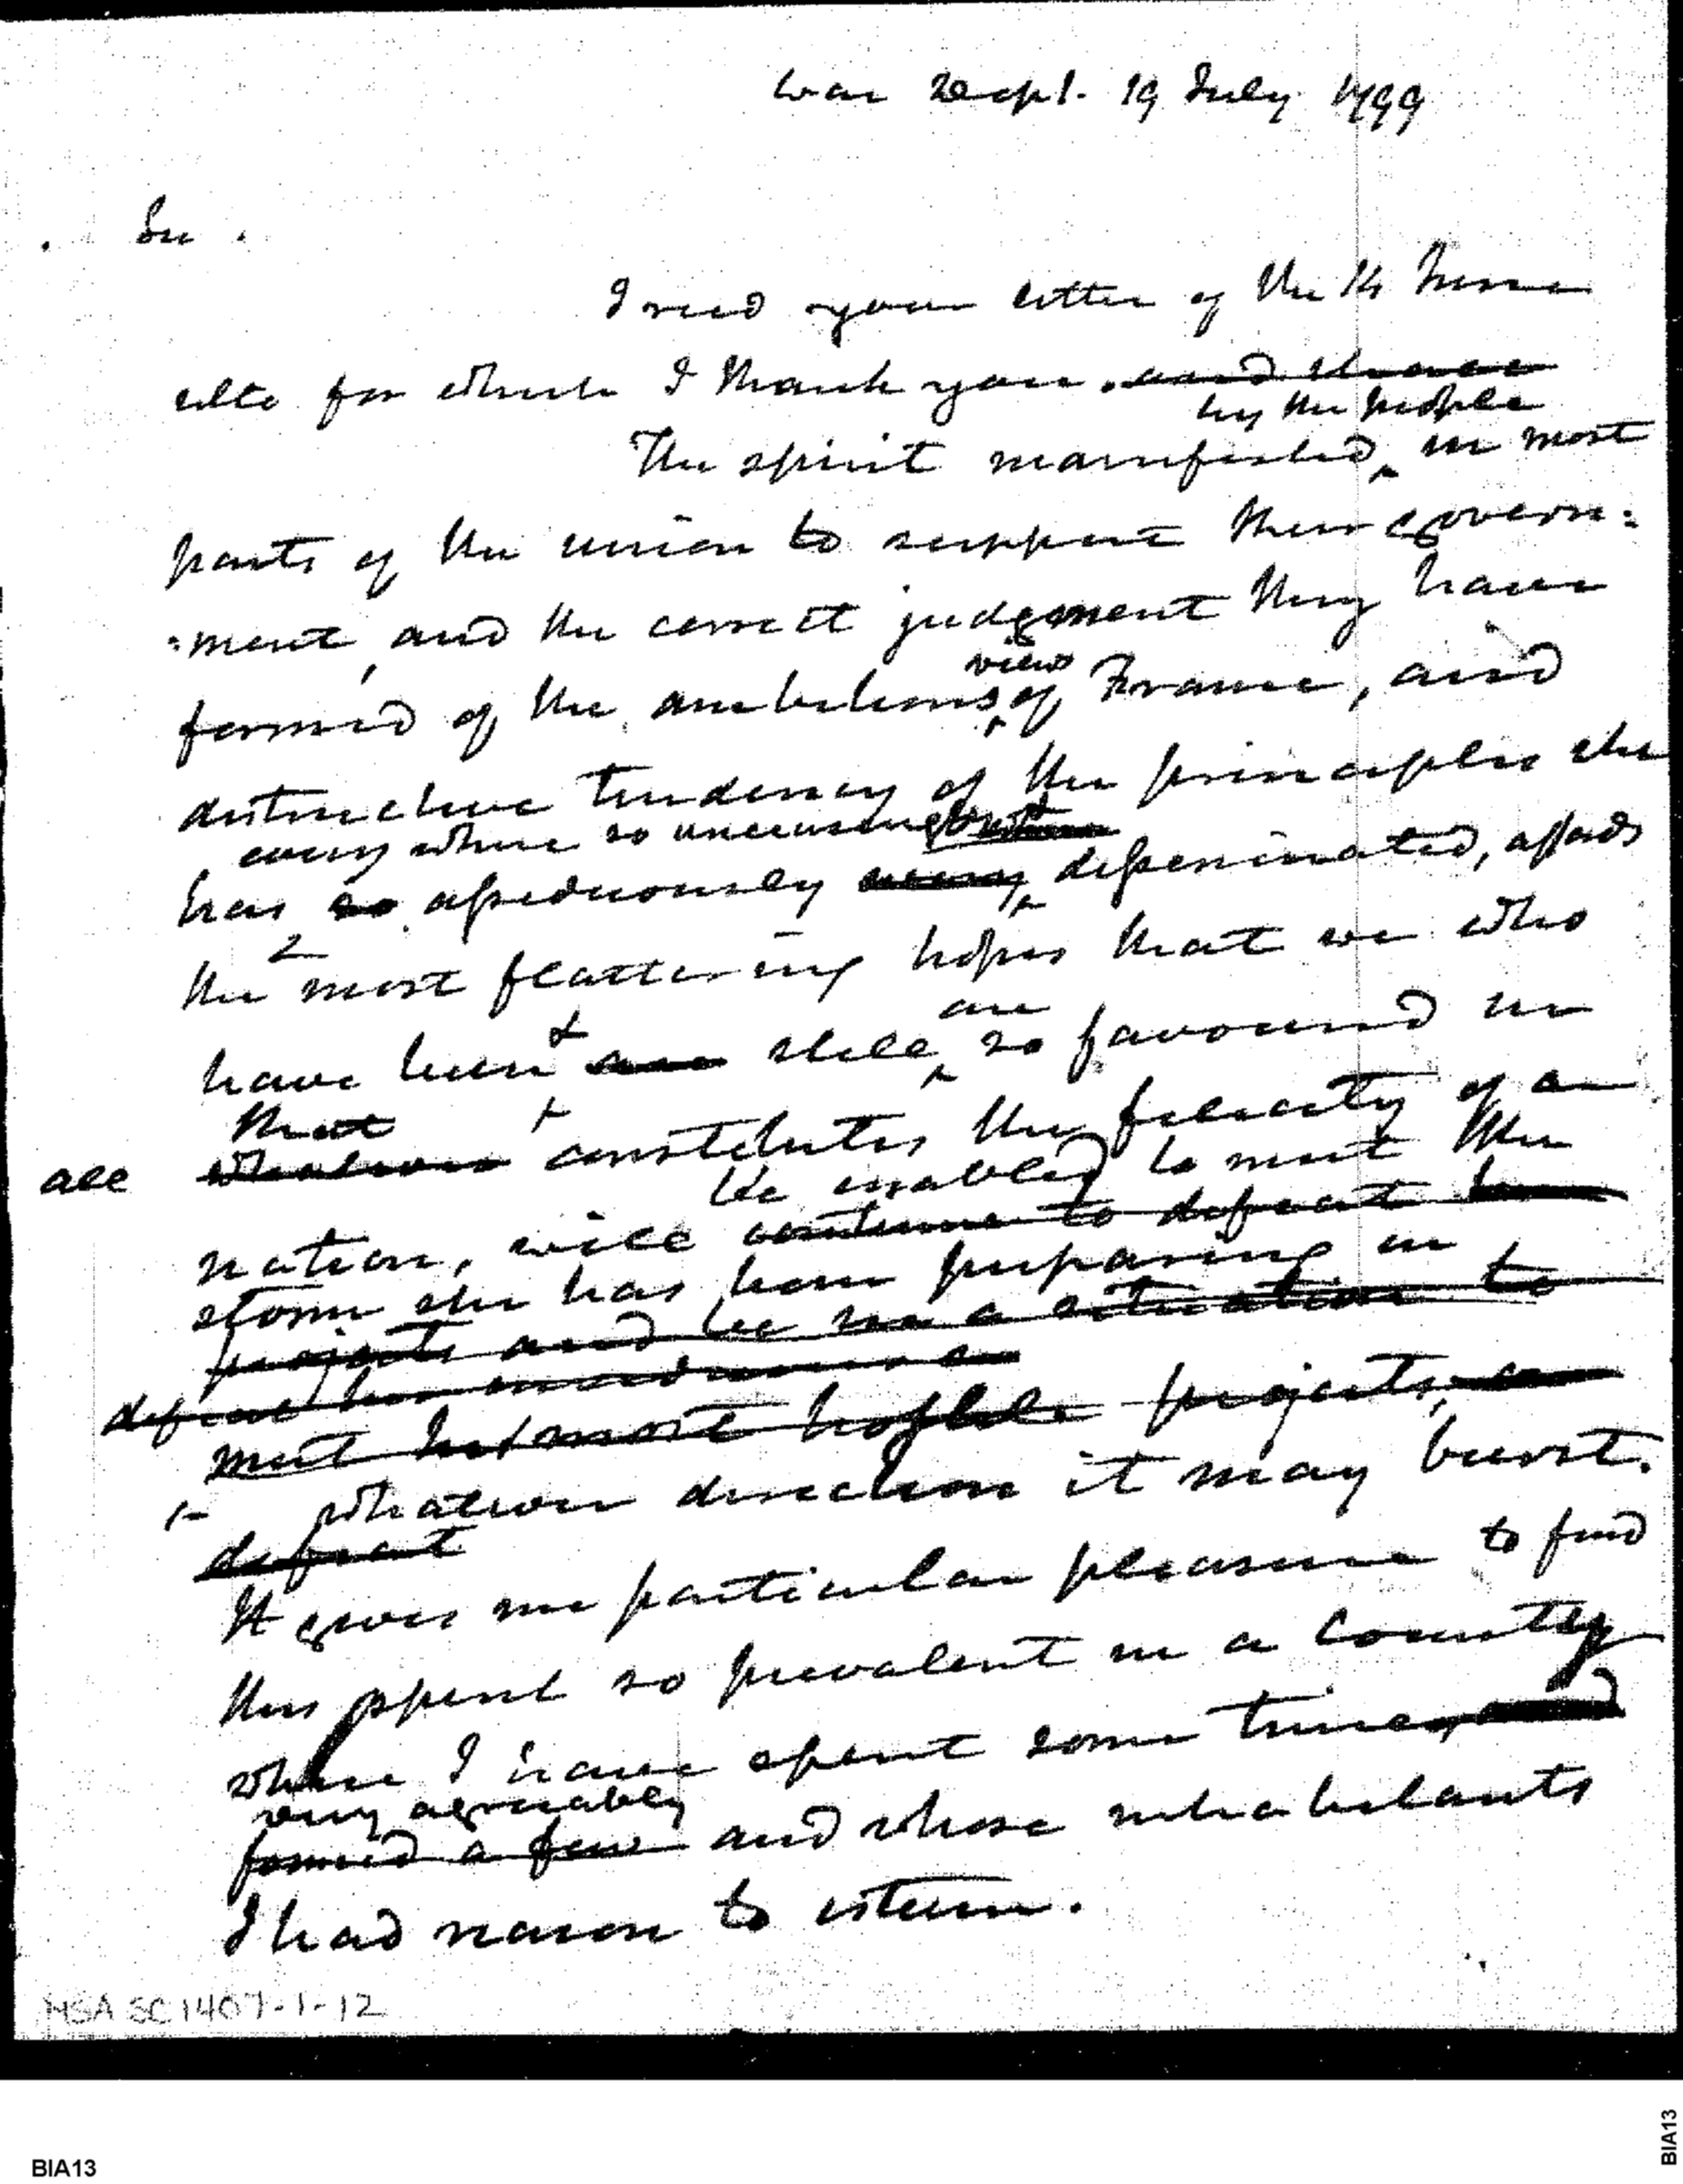 War Dept. 19 July 1799
Sir.
I recd your letter of the 14 June
ulto for which I thank you. and
by the people
The spirit manifested in most
parts of the union to support their govern:
:ment, and the correct judgement they have
views
formed of the ambitious of France, and
distructive tendency of the principles she
every where so unceasingly
has so assiduously disseminated, affords
the most flattering hopes that we who
are
have been & still so favoured in
that
all whatever constitutes the felicity of a
be enabled to meet the
nation, will continue to defeat her
storm she has been preparing in
projects and be in a situation to
defeat her
meet her most hostile projects,
whatever direction it may burst.
defeat
It gives me particular pleasure to find
this spirit so prevalent in a County
where I have spent some time, and
very agreeably
formed a few and whose inhabitants
I had reason to esteem.
MSA SC 1407-1-12
BIA13
BIA13